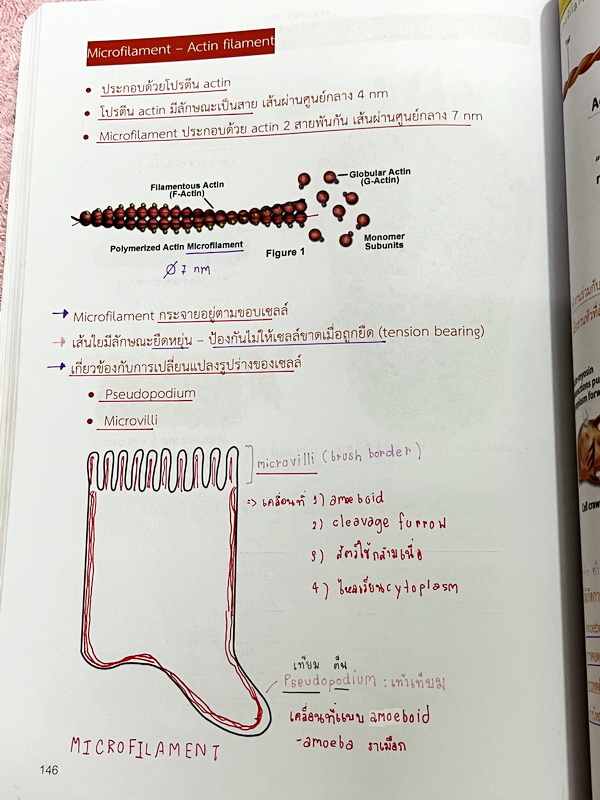 Microfilament – Actin filament
• ประกอบด้วยโปรตีน actin
• โปรตีน actin มีลักษณะเป็นสาย เส้นผ่านศูนย์กลาง 4 nm
• Microfilament ประกอบด้วย actin 2 สายพันกัน เส้นผ่านศูนย์กลาง 7 nm
Filamentous Actin
(F-Actin)
Globular Actin
(G-Actin)
Polymerized Actin Microfilament
Figure 1
Monomer
Subunits
Ø 7 nm
→ Microfilament กระจายอยู่ตามขอบเซลล์
→ เส้นใยมีลักษณะยืดหยุ่น – ป้องกันไม่ให้เซลล์ขาดเมื่อถูกยืด (tension bearing)
→ เกี่ยวข้องกับการเปลี่ยนแปลงรูปร่างของเซลล์
• Pseudopodium
• Microvilli
microvilli (brush border)
=> เคลื่อนที่ 1) amoeboid
2) cleavage furrow
3) สัตว์ใช้กล้ามเนื้อ
4) ไหลเวียน cytoplasm
เทียม ตีน
Pseudopodium : เท้าเทียม
เคลื่อนที่แบบ amoeboid
-amoeba ราเมือก
MICROFILAMENT
146